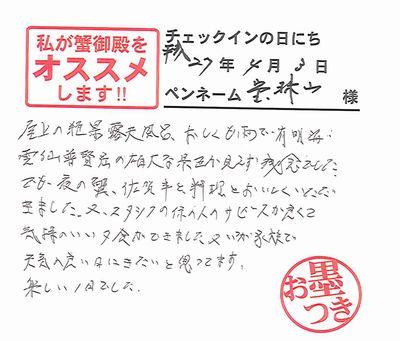 私が蟹御殿を
オススメ
します!!
チェックインの日にち
平成27年4月3日
ペンネーム 様
屋上の絶景露天風呂、おしくも雨で有明海・
雲仙普賢岳の雄大な景色が見えず残念でした
でも夜の蟹、佐賀牛と料理とおいしくいただ
きました。又、スタッフの係の人のサービスが良くて
気持のいい夕食ができました。又いつか家族で
天気の良い日にきたいと思ってます。
楽しい1日でした。
お墨つき